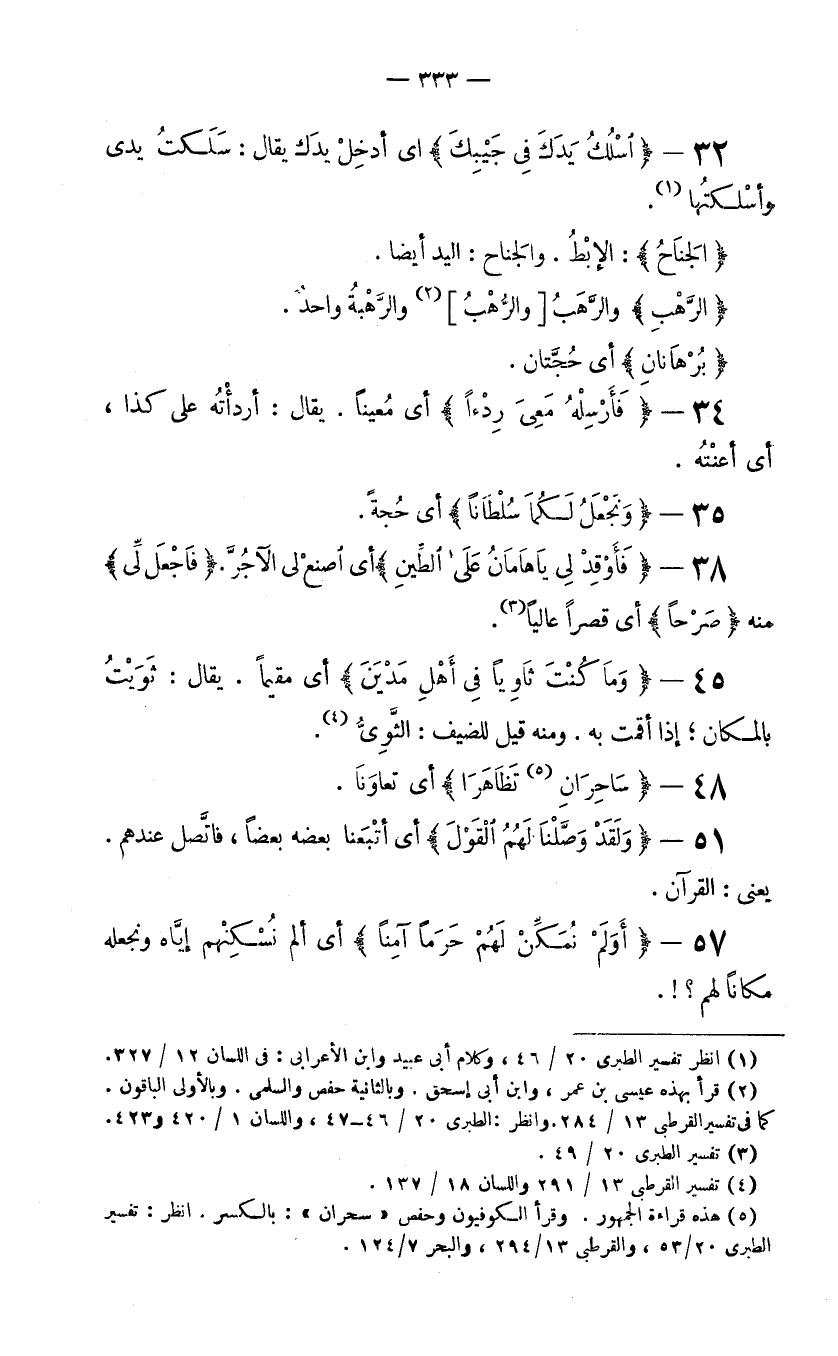 — ٣٣٣ —
٣٢ — ﴿ ٱسْلُكْ يَدَكَ فِى جَيْبِكَ ﴾ اى أدخِلْ يدَك يقال : سَلَـكتُ يدى
وأسْلـكتُها (١).
﴿ الجَنَاحُ ﴾ : الإبْطُ . والجناح : اليد أيضا .
﴿ الرَّهْبِ ﴾ والرَّهَبُ [ والرُّهْبُ ] (٢) والرَّهْبةُ واحدٌ .
﴿ بُرْهَانانِ ﴾ أى حُجَّتان .
٣٤ — ﴿ فَأَرْسِلْهُ مَعِىَ رِدْءاً ﴾ أى مُعيناً . يقال : أردأْتُه على كذا ،
أى أعنْتُه .
٣٥ — ﴿ وَنَجْعَلُ لَـكُمَا سُلْطَاناً ﴾ أى حُجةً .
٣٨ — ﴿ فَأَوْقِدْ لِى يَاهَامَانُ عَلَى ٱلطِّينِ ﴾أى ٱصنعْ لى الآجُرَّ . ﴿ فَاجْعَل لِّى ﴾
منه ﴿ صَرْحاً ﴾ أى قصراً عالياً(٣).
٤٥ — ﴿ وَمَا كُنْتَ ثَاوِياً فِى أَهْلِ مَدْيَنَ ﴾ أى مقيماً . يقال : ثَوَيْتُ
بالمـكان ؛ إذا أقمت به . ومنه قيل للضيف : الثَّوِىُّ (٤).
٤٨ — ﴿ سَاحِرَانِ (٥) تَظَاهَرَا ﴾ أى تعاوَنَا .
٥١ — ﴿ وَلَقَدْ وَصَّلْنَا لَهُمُ ٱلْقَوْلَ ﴾ أى أتْبَعنا بعضه بعضاً ، فاتَّصل عندهم .
يعنى : القرآن .
٥٧ — ﴿ أَوَلَمْ نُمَـكِّنْ لَهُمْ حَرَماً آمِناً ﴾ أى ألم نُسْـكِنْهم إيَّاه ونجعله
مكاناً لهم ؟ ! .
(١) انظر تفسير الطبرى ٢٠ / ٤٦ ، وكلام أبى عبيد وابن الأعرابى : فى اللسان ١٢ / ٣٢٧.
(٢) قرأ بهذه عيسى بن عمر ، وابن أبى إسحق . وبالثانية حفص والسلمى . وبالأولى الباقون .
كما فى تفسير القرطبى ١٣ / ٢٨٤.وانظر :الطبرى ٢٠ / ٤٦–٤٧ ، واللسان ١ / ٤٢٠ و٤٢٣.
(٣) تفسير الطبرى ٢٠ / ٤٩ .
(٤) تفسير القرطبى ١٣ / ٢٩١ واللسان ١٨ / ١٣٧ .
(٥) هذه قراءة الجمهور . وقرأ الـكوفيون وحفص « سحران » : بالـكسر . انظر : تفسير
الطبرى ٥٣/٢٠ ، والقرطبى ٢٩٤/١٣ ، والبحر ١٢٤/٧ .